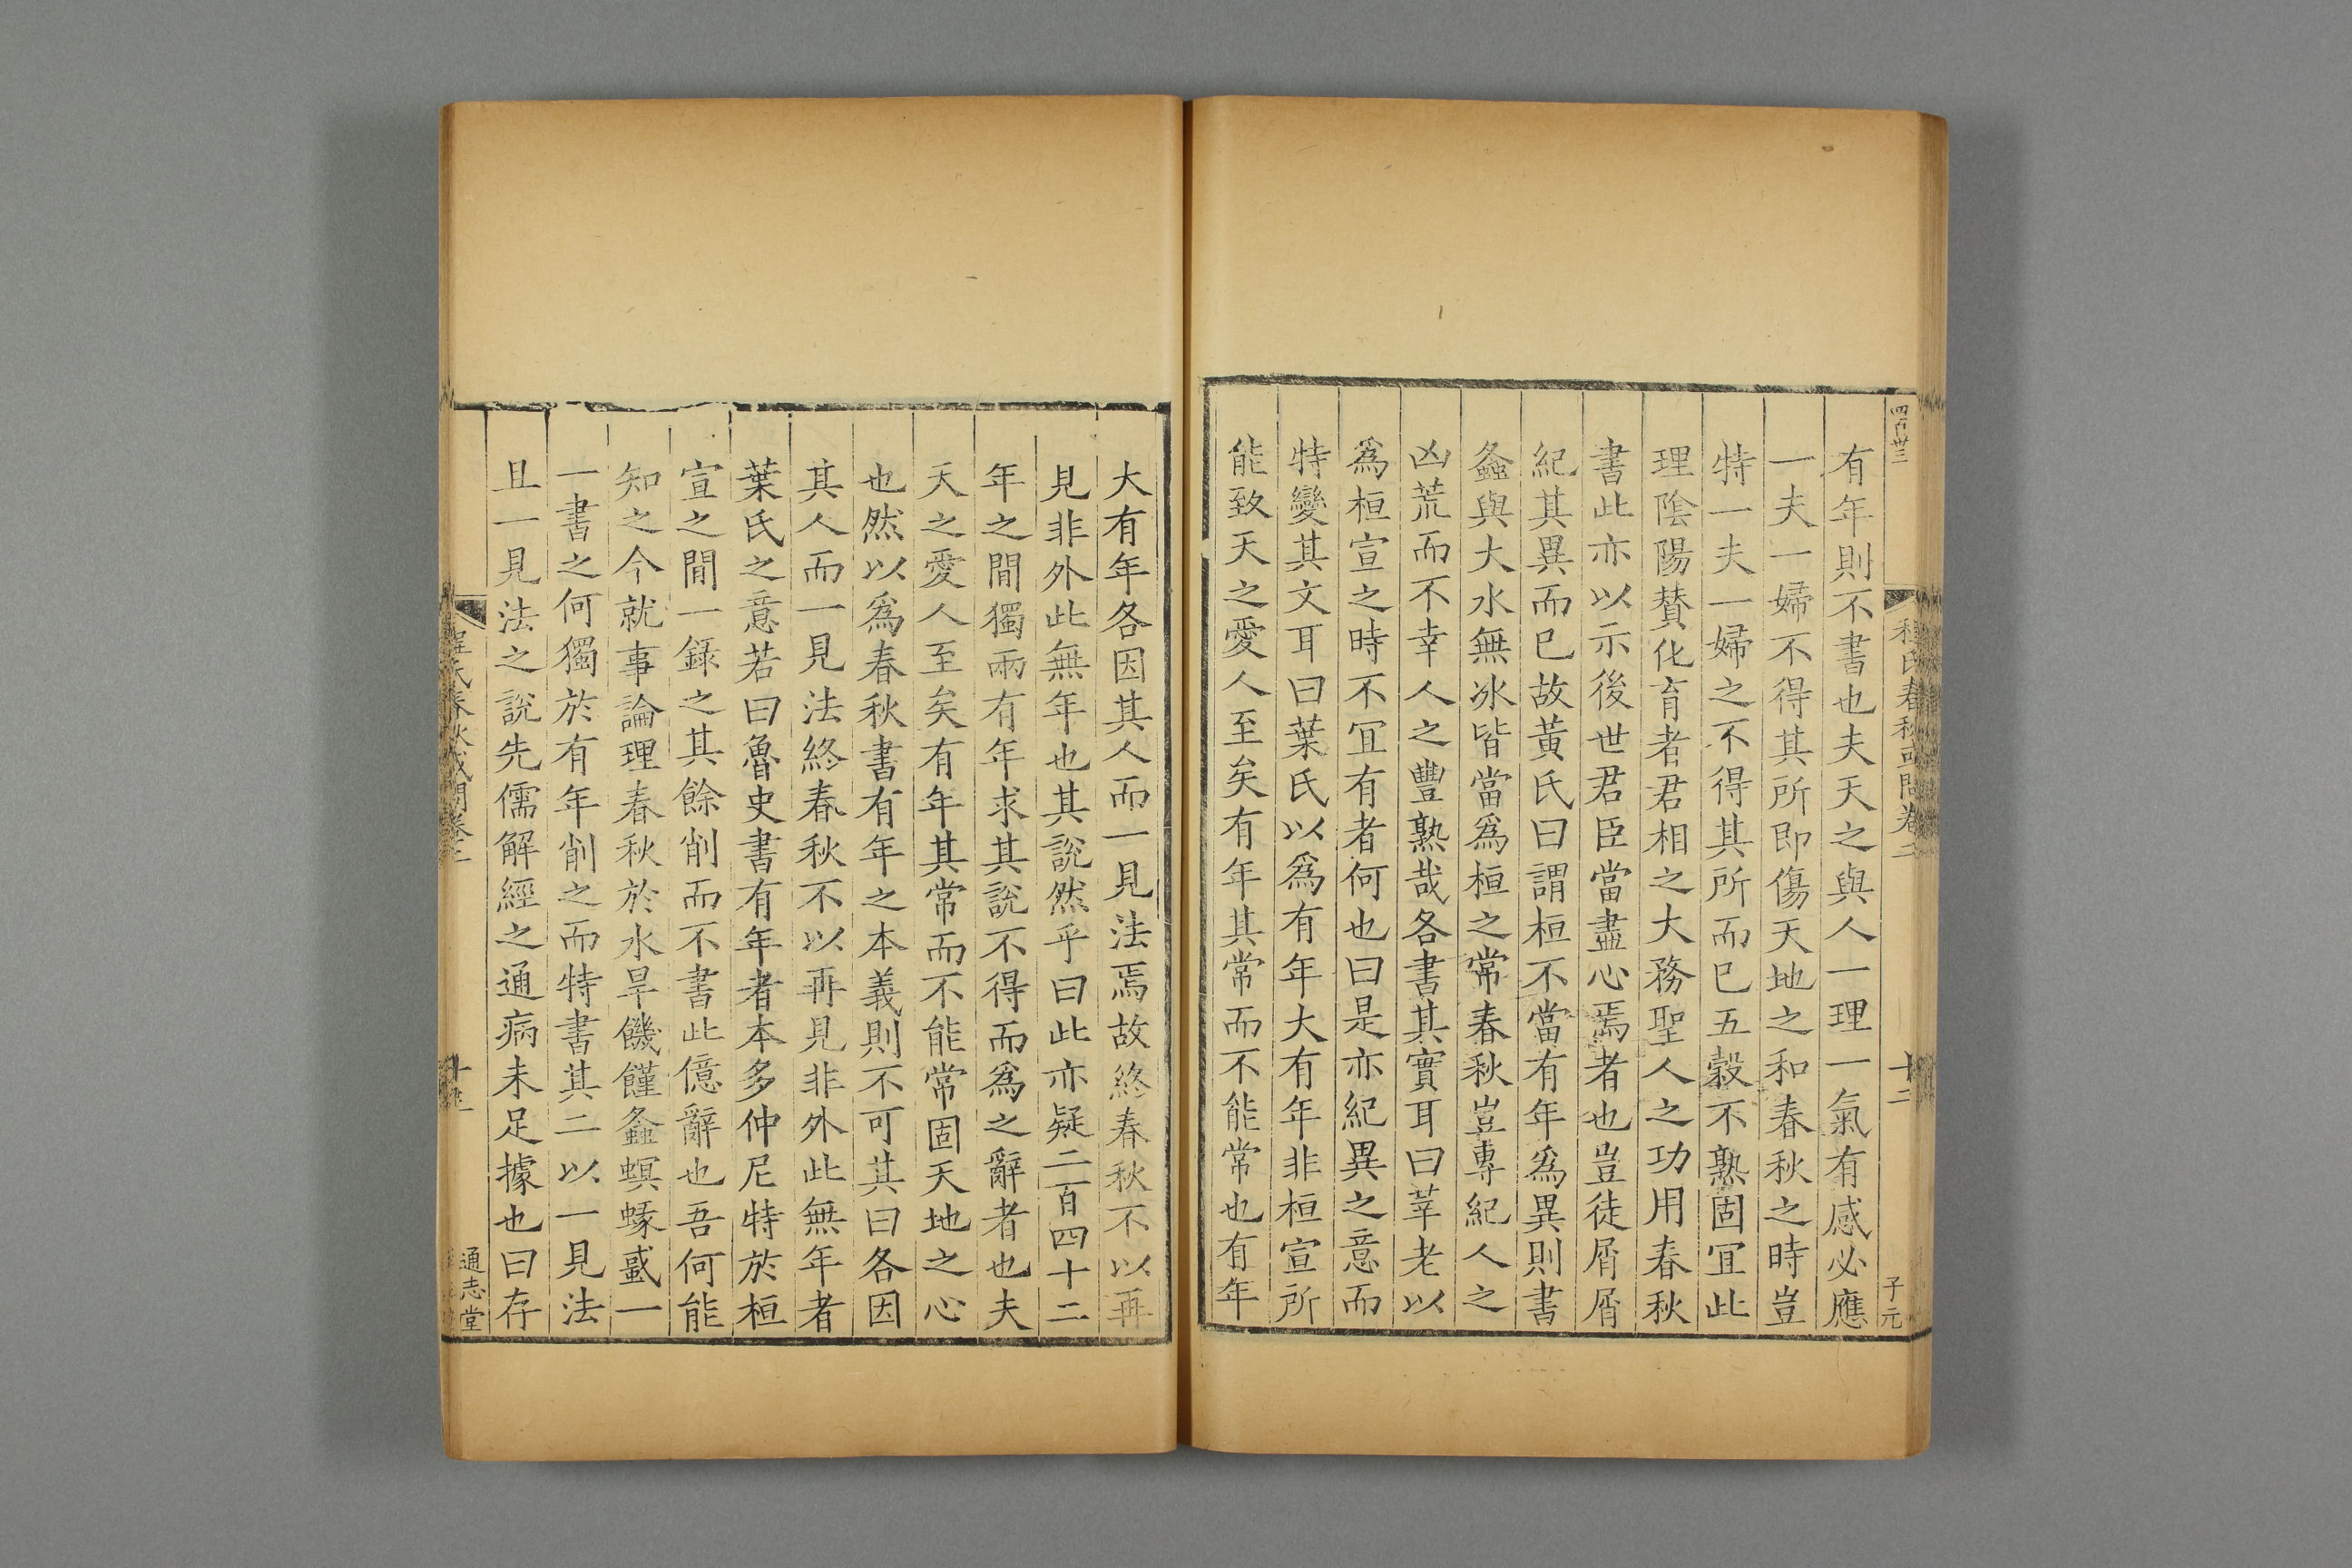 四百卅三
程氏春秋或問卷二
十二
子元
有年則不書也夫天之與人一理一氣有感必應
一夫一婦不得其所即傷天地之和春秋之時豈
特一夫一婦之不得其所而已五穀不熟固宜此
理陰陽賛化育者君相之大務聖人之功用春秋
書此亦以示後世君臣當盡心焉者也豈徒屑屑
紀其異而已故黃氏曰謂桓不當有年爲異則書
螽與大水無冰皆當爲桓之常春秋豈專紀人之
凶荒而不幸人之豐熟哉各書其實耳曰莘老以
爲桓宣之時不宜有者何也曰是亦紀異之意而
特變其文耳曰葉氏以爲有年大有年非桓宣所
能致天之愛人至矣有年其常而不能常也有年
大有年各因其人而一見法焉故終春秋不以再
見非外此無年也其說然乎曰此亦疑二百四十二
年之間獨兩有年求其說不得而爲之辭者也夫
天之愛人至矣有年其常而不能常固天地之心
也然以爲春秋書有年之本義則不可其曰各因
其人而一見法終春秋不以再見非外此無年者
葉氏之意若曰魯史書有年者本多仲尼特於桓
宣之間一錄之其餘削而不書此億辭也吾何能
知之今就事論理春秋於水旱饑饉螽螟蝝蜮一
一書之何獨於有年削之而特書其二以一見法
且一見法之說先儒解經之通病未足據也曰存
程氏春秋或問卷二
通志堂